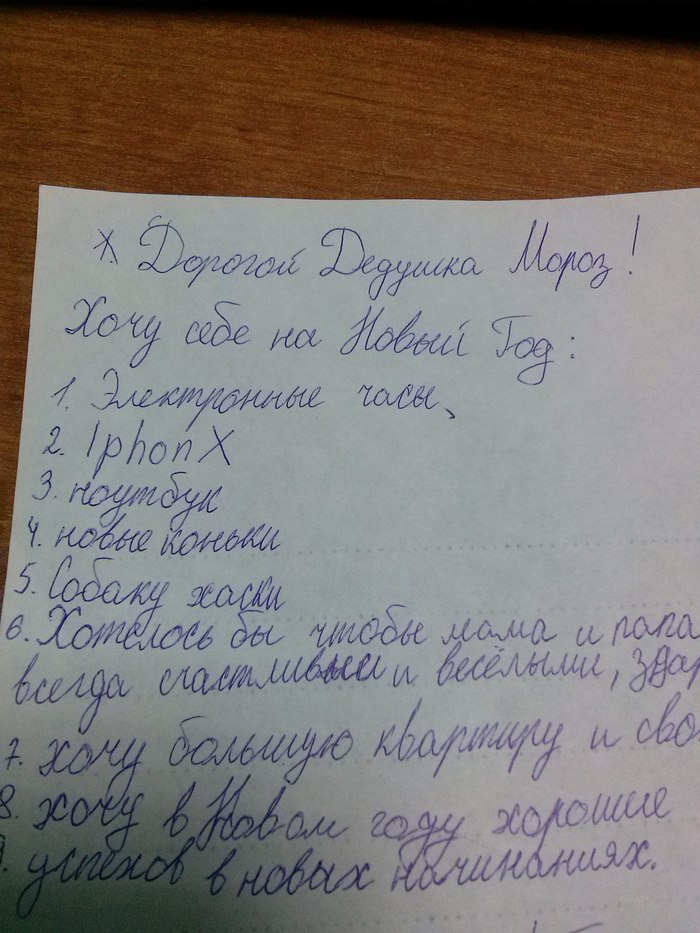 Дорогой Дедушка Мороз!
Хочу себе на Новый Год:
1. Электронные часы,
2. IphonX
3. ноутбук
4. новые коньки
5. Собаку хаски
6. Хотелось бы чтобы мама и папа
всегда счастливыи и весёлыми,
7. хочу большую квартиру и сво
8. хочу в Новом году хорошие
9. успехов в новых начинаниях.